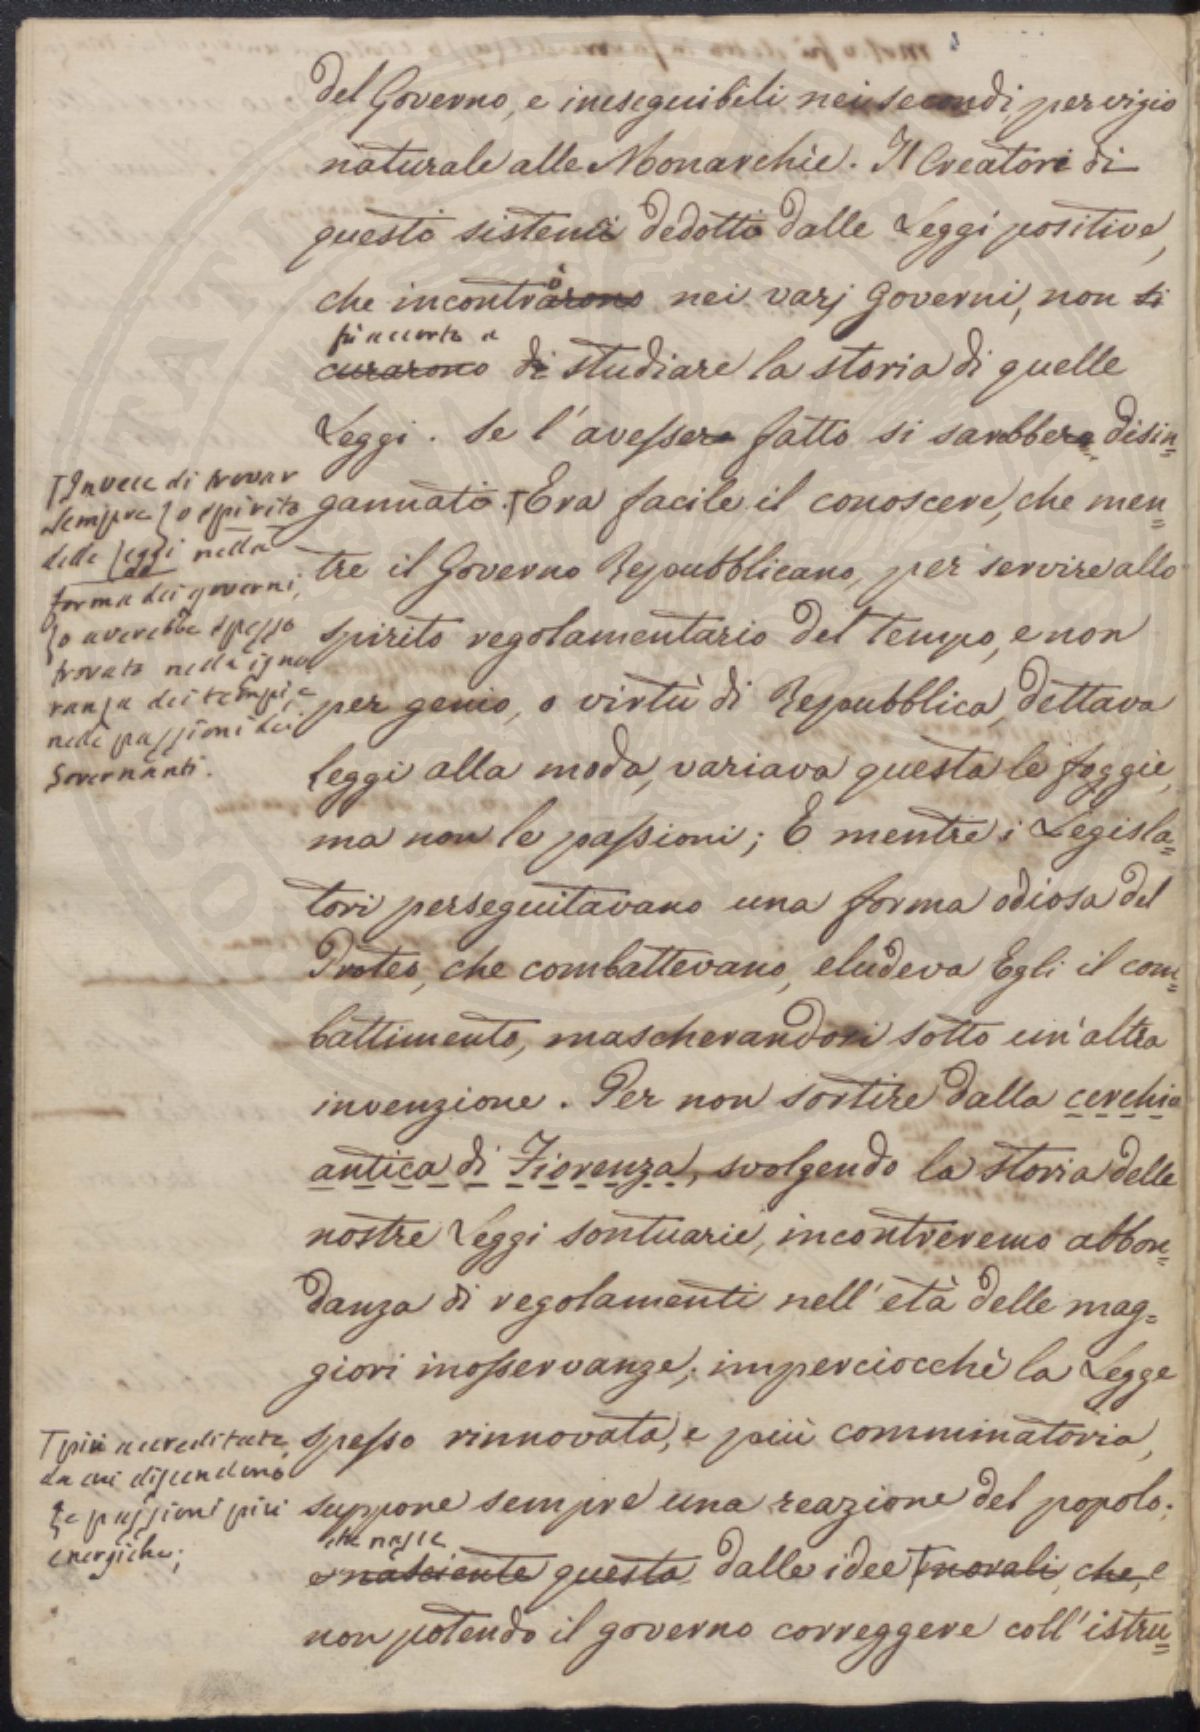 del Governo, e ineseguibili nei secondi, per vigio
naturale alle Monarchie. Il Creatore di
questo sistema dedotto dalle Leggi positive,
che incontrarono ò nei varj Governi, non si
fù accorto a
curarono di studiare la storia di quelle
Leggi. Se l'avessero fatto si sarebbero disin=
gannato. Era facile il conoscere, che men=
tre il Governo Repubblicano, per servire allo
spirito regolamentario del tempo, e non
per genio, o virtù di Repubblica, dettava
leggi alla moda, variava questa le foggie,
ma non le passioni; E mentre i Legisla=
tori perseguitavano una forma odiosa del
Proteo, che combattevano, eludeva Egli il com=
battimento, mascherandosi sotto un'altra
invenzione. Per non sortire dalla cerchia
antica di Fiorenza, svolgendo la storia delle
nostre Leggi sontuarie, incontreremo abbon=
danza di regolamenti nell'età delle mag=
giori inosservanze; imperciocchè la Legge
spesso rinnovata, e più comminatoria,
suppone sempre una reazione del popolo;
che nasce
e nasciente questa dalle idee morali, che, e
non potendo il governo correggere coll'istru=
Invece di trovar
sempre lo spirito
delle leggi nella
forma dei governi,
lo averebbe spesso
trovato nella igno
ranza dei tempi, e
nelle passioni dei
Governanti.
più accreditate,
da cui discendono
le passioni più
energiche;